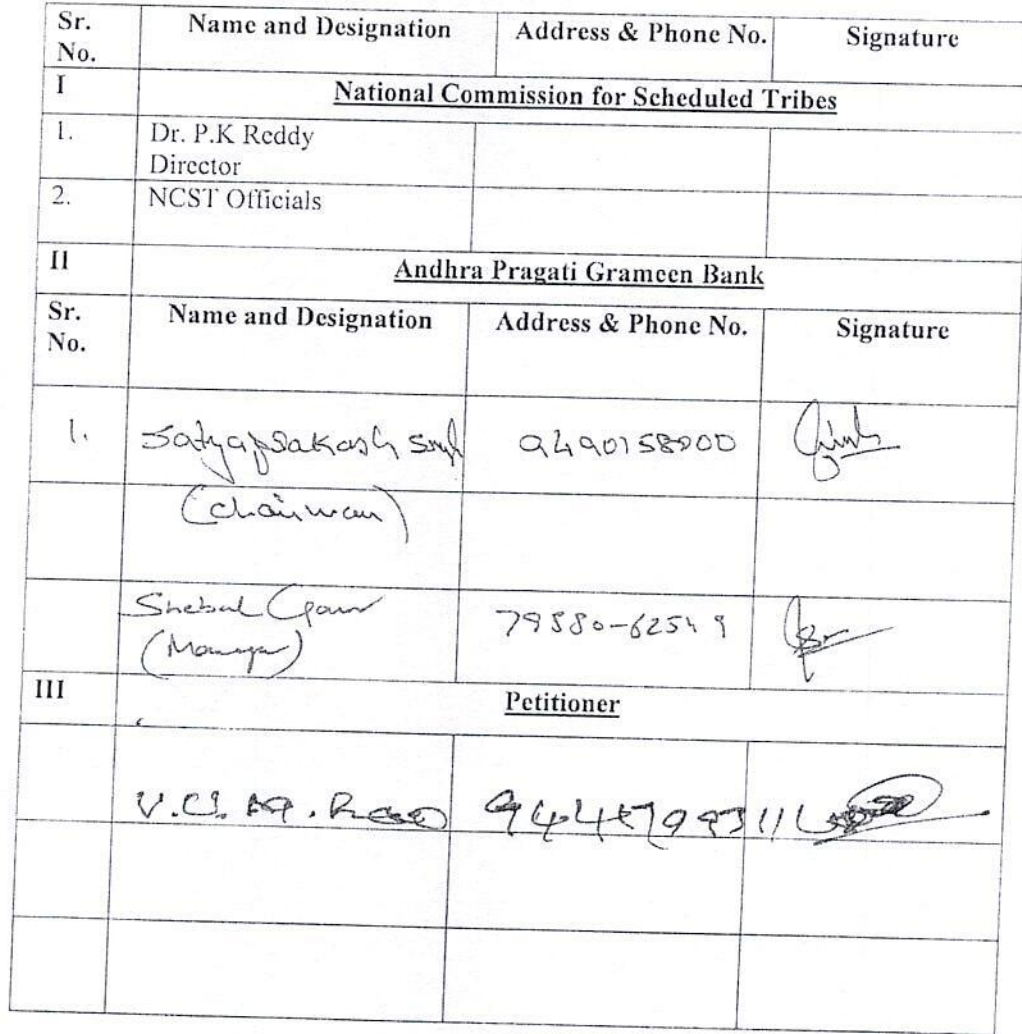 Sr. No. Name and Designation Address & Phone No. Signature
I National Commission for Scheduled Tribes
1. Dr. P.K Reddy
Director
2. NCST Officials
II Andhra Pragati Grameen Bank
Sr. No. Name and Designation Address & Phone No. Signature
1. Satyaprakash Singh 9490158000
(Chairman)
(Manager)
III Petitioner
V.C.